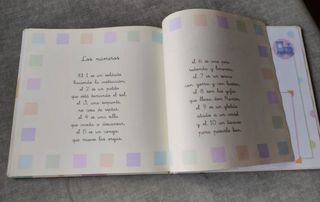 Los números
El 1 es un soldado
haciendo la instrucción,
el 2 es un patito
que está tomando el sol,
el 3, una serpiente,
no cesa de
el 4 es una silla
que invita a descansar,
el 5 es un conejo
que mueve las orejas,
el 6 es una
redonda y
el 7 es un señor
con gorra y con bastón,
el 8 son las gafas
que lleva don Ramón,
el 9 es un globito
atado a un cordel
y el 10 un
para